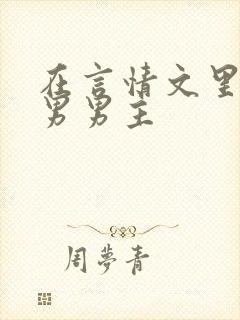 在言情文里
男男主
周夢青